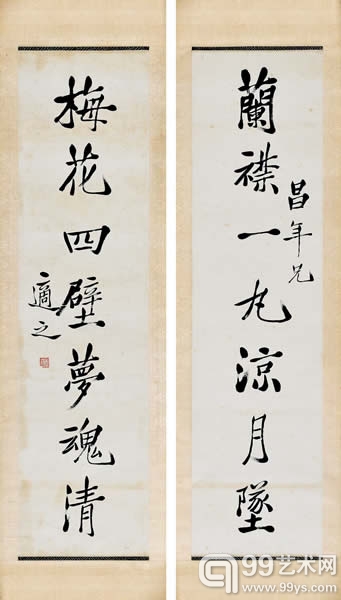 蘭襟一丸涼月墜
昌年兄
梅花四壁夢魂清
適之
99艺术网
www.99ys.com